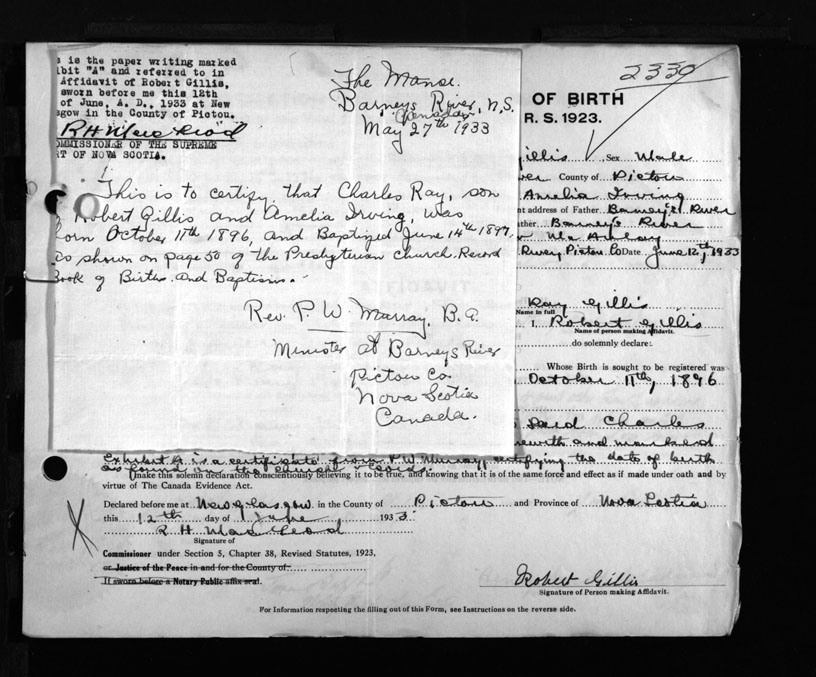 s is the paper writing marked
ibit "A" and referred to in
Affidavit of Robert Gillis,
sworn before me this 12th
of June, A. D., 1933 at New
sgow in the County of Pictou.
R H MacLeod
OMMISSIONER OF THE SUPREME
RT OF NOVA SCOTIA.
The Manse.
Barneys River, N.S.
Canada
May 27th 1933
This is to certify that Charles Ray, son
Robert Gillis and Amelia Irving, was
born October 11th 1896, and Baptized June 14th 1897,
as shown on page 50 of the Presbyterian Church Record
Book of Births and Baptism.
Rev. P. W. Murray, B.A.
Minister at Barneys River
Pictou Co.
Nova Scotia
Canada.
2330
OF BIRTH
R. S. 1923.
Gillis Sex Male
ver County of Pictou
Amelia Irving
nt address of Father Barney's River
ather Barney's River
River, Pictou Co Date June 12th, 1933
Ray Gillis
Name in full
I, Robert Gillis
Name of person making Affidavit.
do solemnly declare:
Whose Birth is sought to be registered was
October 11th, 1896
said Charles
herewith and marked
Exhibit A is a certificate from P. W. Murray, certifying the date of birth
as found in the church records.
I make this solemn declaration conscientiously believing it to be true, and knowing that it is of the same force and effect as if made under oath and by
virtue of The Canada Evidence Act.
Declared before me at New Glasgow in the County of Pictou and Province of Nova Scotia
this 12th day of June 1933.
R H MacLeod
Signature of
Commissioner under Section 5, Chapter 38, Revised Statutes, 1923,
or Justice of the Peace in and for the County of
If sworn before a Notary Public affix seal.
Robert Gillis
Signature of Person making Affidavit.
For Information respecting the filling out of this Form, see Instructions on the reverse side.